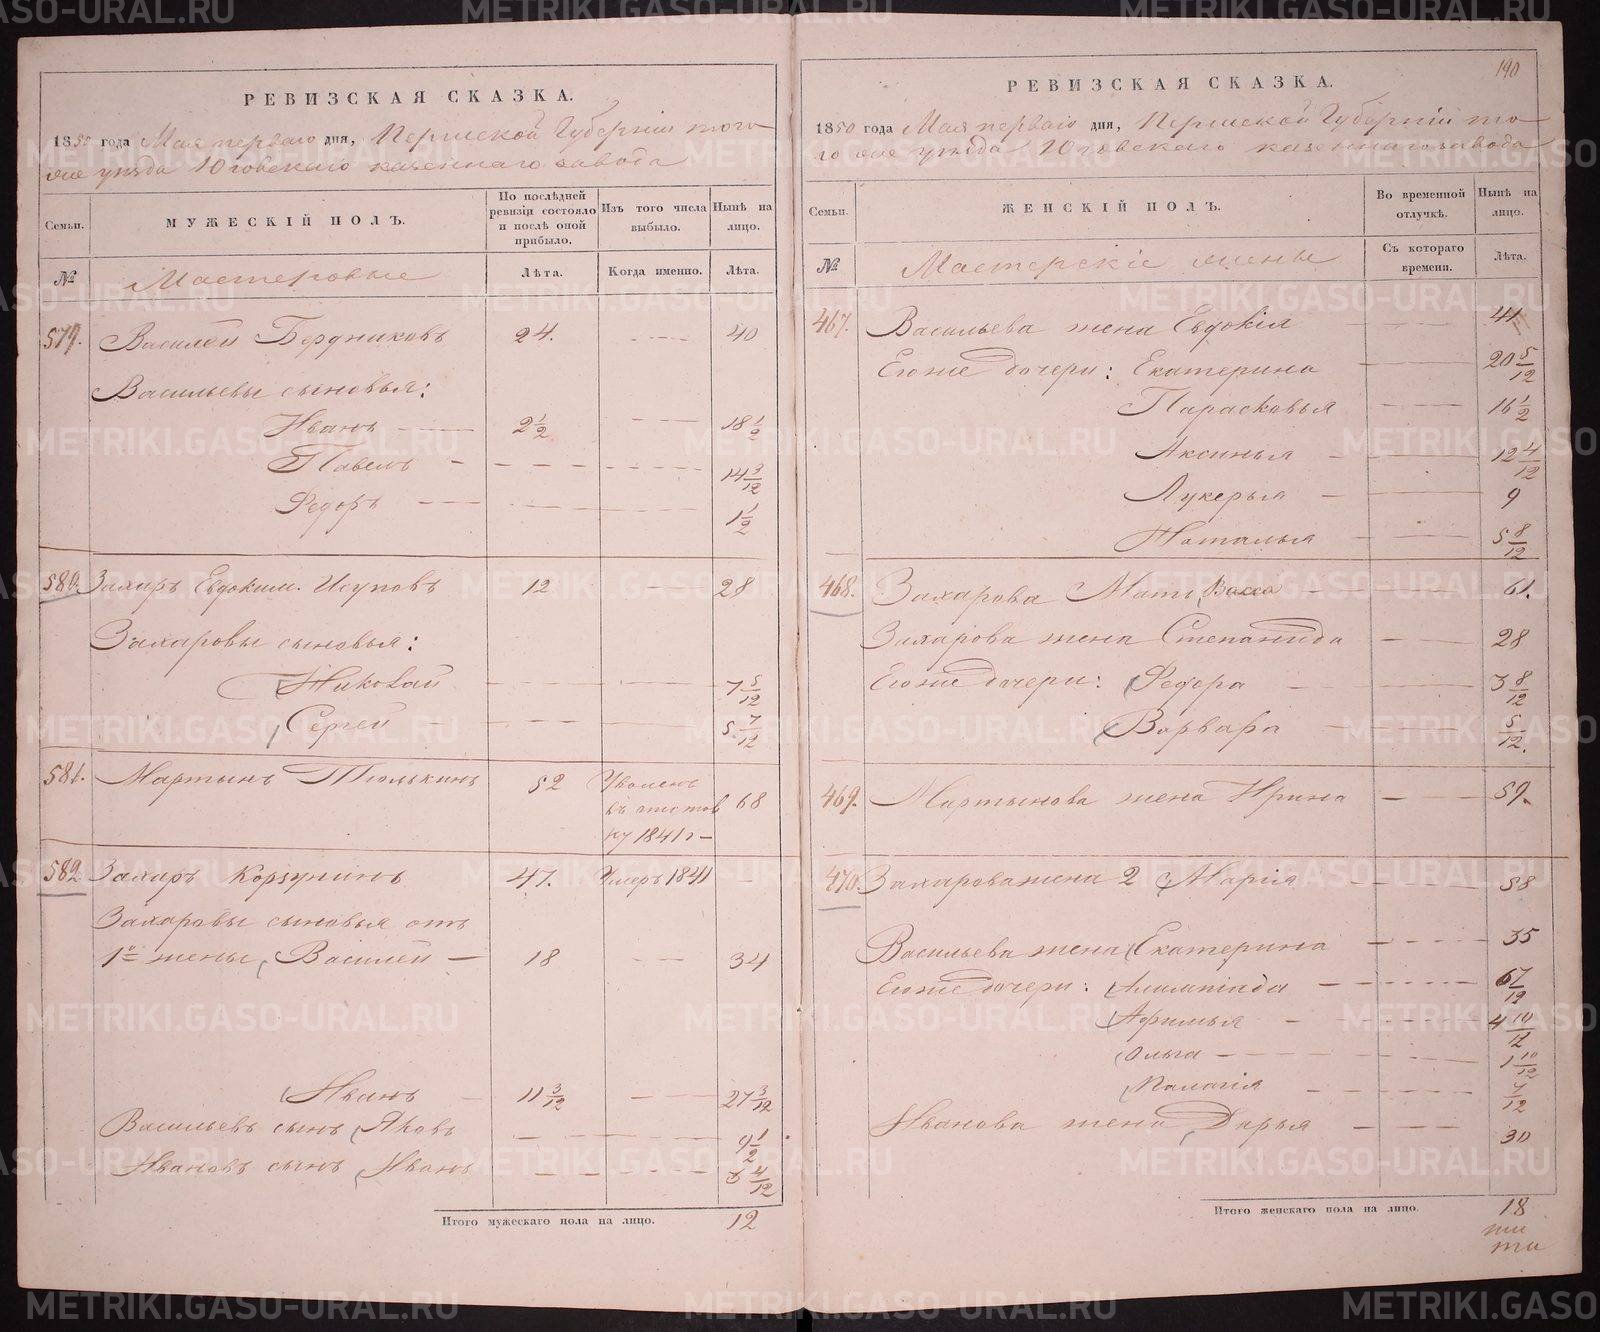 РЕВИЗСКАЯ СКАЗКА.
1850 года Мая перваго дня, Пермской Губерніи того
же уезда Юговскаго казеннаго завода
Семьи.
МУЖЕСКІЙ ПОЛЪ.
По послѣдней ревизіи состояло и послѣ оной прибыло.
Изъ того числа выбыло.
Нынѣ на лицо.
№
Мастеровые
Лѣта.
Когда именно.
Лѣта.
579. Василей Бердниковъ 24. 40
Васильевы сыновья:
Иванъ 2 1/2 18 1/2
Павелъ 14 3/12
Федоръ 1 1/2
580. Захаръ Евдоким. Исуповъ 12 28
Захаровы сыновья:
Николай 7 5/12
Сергей 5 7/12
581. Мартынъ Тюлькинъ 52 Уволенъ 68
въ отстав
ку 1841 г
582. Захаръ Корзунинъ 47. Умеръ 1841
Захаровы сыновья отъ
1й жены Василей 18 34
Иванъ 11 3/12 27 3/12
Васильевъ сынъ Яковъ 9 1/2
Ивановъ сынъ Иванъ 4/12
Итого мужескаго пола на лицо. 12
190
РЕВИЗСКАЯ СКАЗКА.
1850 года Мая перваго дня, Пермской Губерніи то
го же уезда Юговскаго казеннаго завода
Семьи.
ЖЕНСКІЙ ПОЛЪ.
Во временной отлучкѣ.
Нынѣ на лицо.
№
Мастерскіе жены
Съ котораго времени.
Лѣта.
467. Васильева жена Евдокія 41
Егоже дочери: Екатерина 20 5/12
Парасковья 16 1/2
Аксинья 12 4/12
Лукерья 9
Наталья 5 8/12
468. Захарова Мать Васса 61.
Захарова жена Степанида 28
Егоже дочери: Федора 3 8/12
Варвара 5/12.
469. Мартынова жена Ирина 59.
470. Захарова жена 2 Марія 58
Васильева жена Екатерина 35
Егоже дочери: Алимпіада 6 7/12
Афимья 4 10/12
Ольга 1 10/12
Палагія 7/12
Иванова жена Дарья 30
Итого женскаго пола на лицо. 18